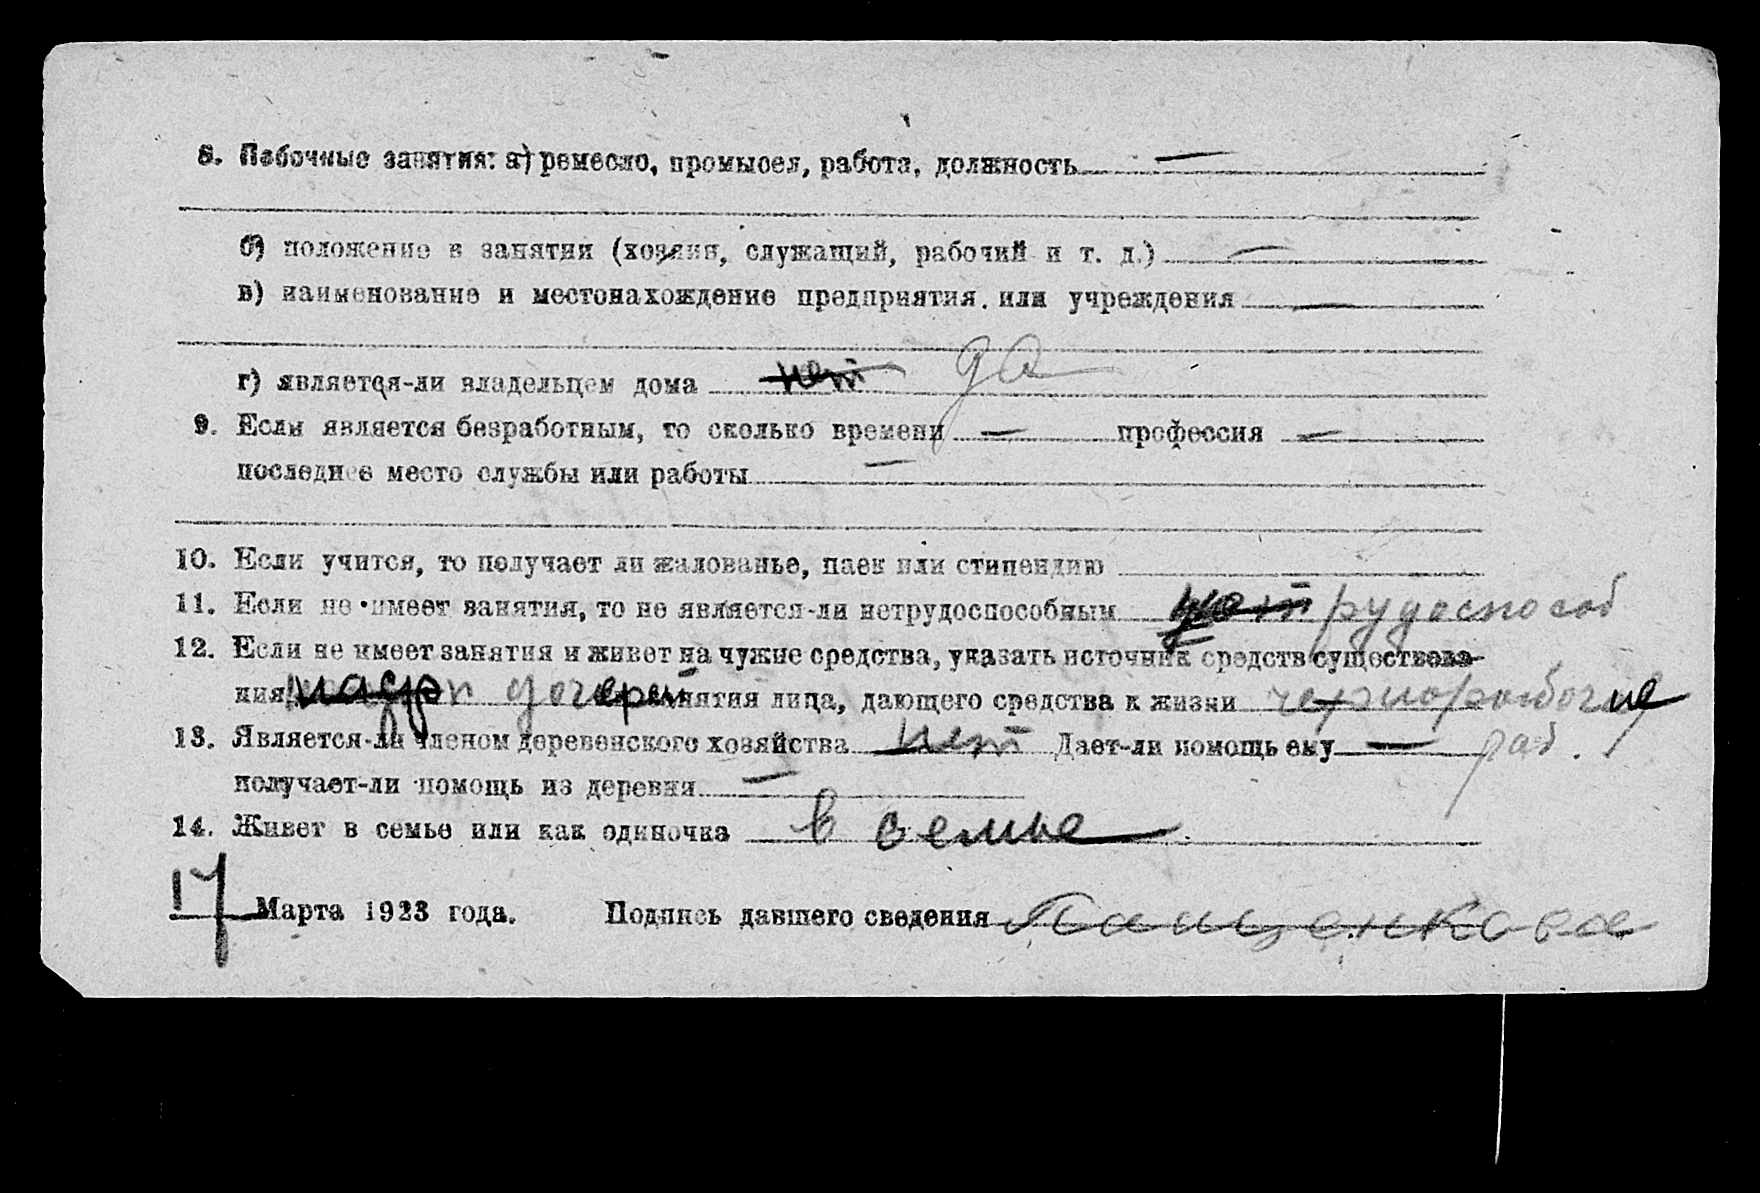 8. Побочные занятия: а) ремесло, промысел, работа, должность —
б) положение в занятии (хозяин, служащий, рабочий и т. д.) —
в) наименование и местонахождение предприятия или учреждения —
г) является-ли владельцем дома нет да
9. Если является безработным, то сколько времени — профессия —
последнее место службы или работы —
10. Если учится, то получает ли жалованье, паек или стипендию
11. Если не имеет занятия, то не является-ли нетрудоспособным трудоспособ
12. Если не имеет занятия и живет на чужие средства, указать источник средств существова-
ния дочерей занятия лица, дающего средства к жизни чернорабочие
13. Является-ли членом деревенского хозяйства нет Дает-ли помощь ему — раб.
получает-ли помощь из деревни —
14. Живет в семье или как одиночка в семье
17 Марта 1923 года. Подпись давшего сведения Пащенкова